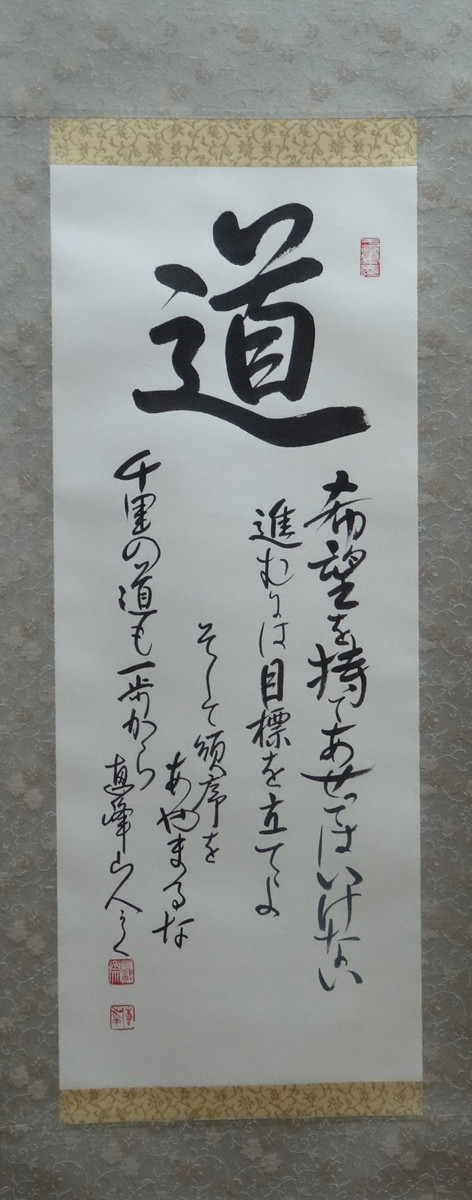 道
希望を持てあせってはいけない
進むには目標を立てよ
そして順序を
あやまるな
千里の道も一歩から
峰山人